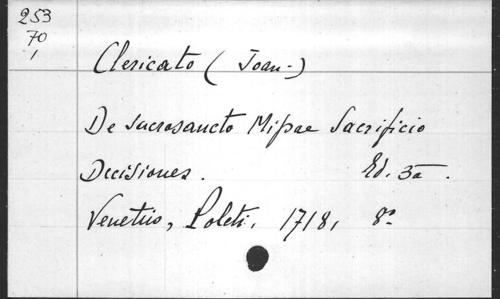 253
70
1
Clericato (Joan-)
De sacrosancto Missae Sacrificio
Decisiones. Ed. 3a.
Venetiis, Poleti, 1718, 8º